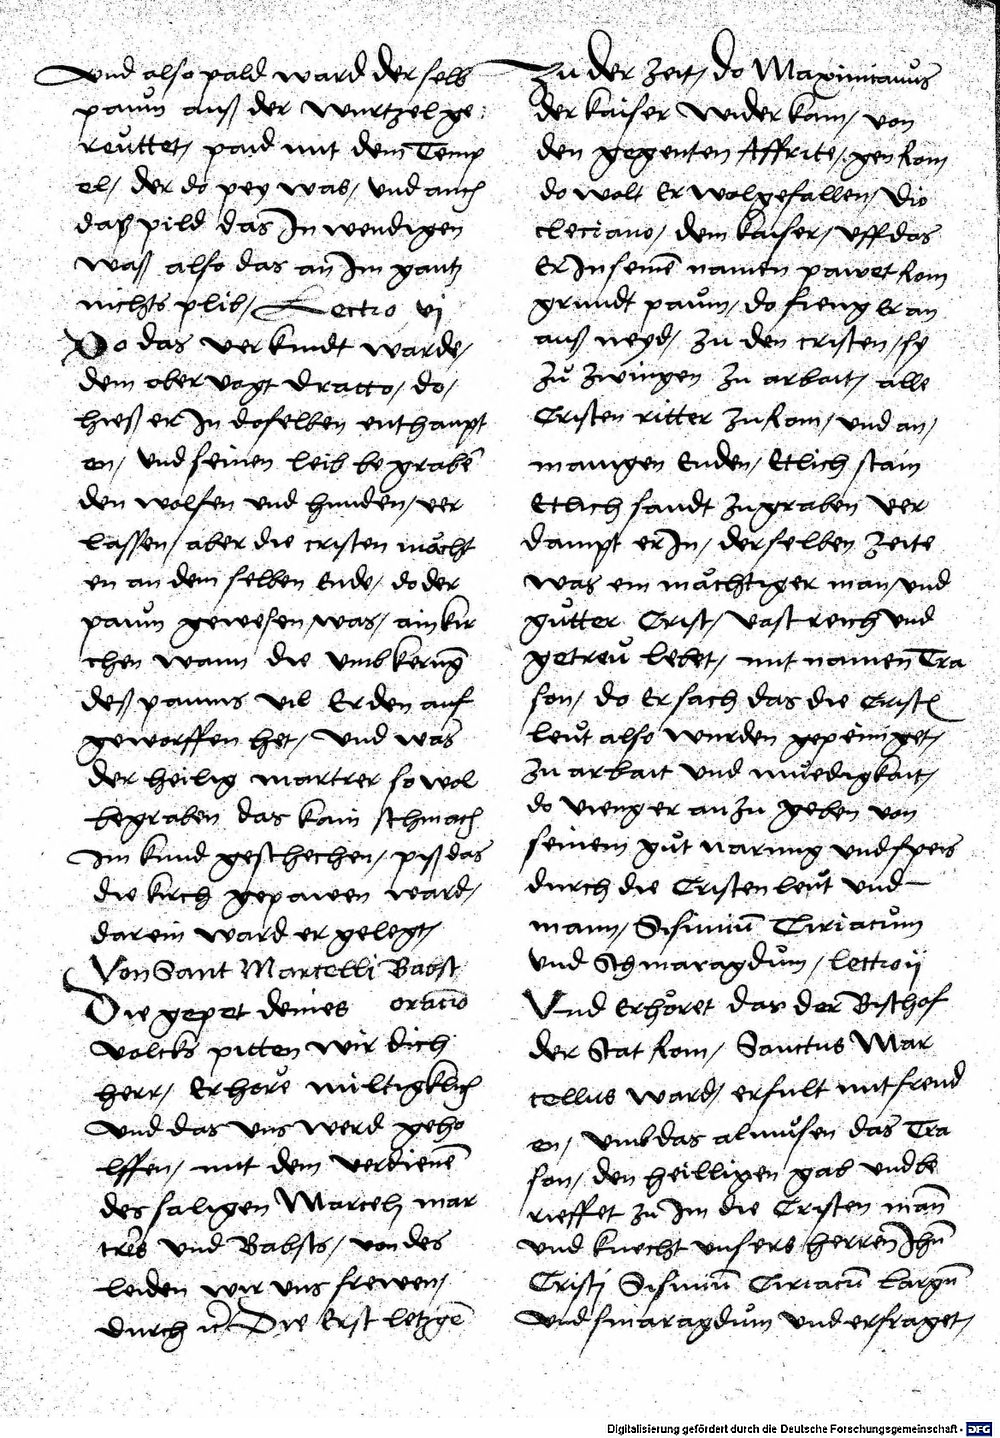 und also pald ward der selb
paum auß der wurtzel ge:
reuttet, paid mit dem Temp
el, der do pey was, und auch
daß pild das Inwendigen
waß also das an Im gantz
nichts plib, Lectio vj
Do das verkundt warde,
dem obervogt dratto, do,
hieß er In doselben enthaupt
en, und seinen leib begrabē
den wolfen und hunden, ver
lassen, aber die cristen mächt
en an dem selben Ende, do der
paum gewesen, was, ain kir
chen wann die umbkerūg
deß paums vil Erden auf
geworffen het, und was
der heilig martrer so wol
begraben das kain schmach
Im kund geschechen, piß das
die kirch gepawen ward,
darein ward er gelegt,
Von Sant Marcelli Babst
Die gepet deines oratio
volcks pitten wir dich
herr, Erhöre miltigklich
und das uns werd geho
lffen, mit dem verdienē
des saligen Marcelj mar
trēs und Babsts, von des
leiden wir uns frewen,
durch Die Erst letzgē
Zu der Zeit, do Maximianus
der kaiser wider kam, von
den gegenten Affrice, gen Rom
do wolt Er wolgefallen, Dio
cleciano, dem kaiser, uff das
Er In seinē namen pawet Rom
grundt paum, do fieng Er an
auß neyd, zu den cristen, sy
zů zwingen zu arbait, alle
Cristen ritter zu Rom, und an,
manigen Enden, Etlich stain
Etlich sandt zugraben ver
dampt er In, derselben zeite
was ein mächtiger man, und
gůtter Crist, vast reich und
getreu lebet, mit namen Tra
son, do Er sach das die Cristē
leut also wurden gepeiniget,
zu arbait und müedigkait,
do vieng er an zu geben von
seinem gůt narung und speis
durch die Cristenleut und
mann, Sisiniū Ciriacum
und Schmaragdum, lectio ij
Und Erhöret das der Bischof
der Stat Rom, Sanctus Mar
cellus ward, erfult mit freud
en, umb das almůsen das Tra
son, den heilligen gab und be
rieffet zu Im die Cristen mañ
und knecht unsers herren Jhū
Cristj Sisiniū Ciriacū Largū
und smaragdum und erfraget,
Digitalisierung gefördert durch die Deutsche Forschungsgemeinschaft - DFG